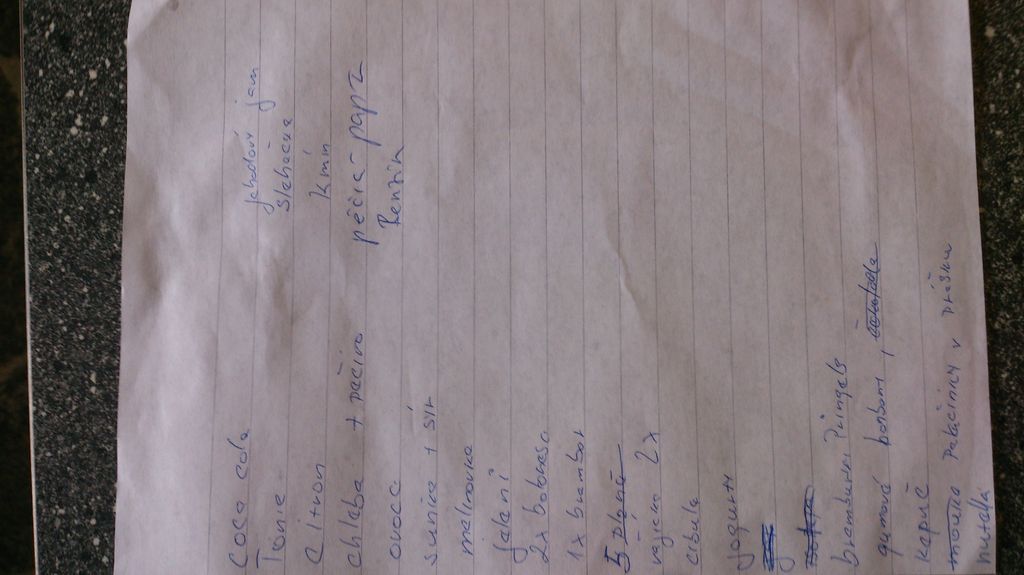 Coca cola
Tonic
Citron
chleba + pečivo
ovoce
sunka + sír
malinovka
jelení
2x bolonese
1x brambor
5
rajčena 2x
cibule
jogurty
bramburki Pringels
gumové bonboni, čokoláda
kapič
mouka Palačinky v prášku
nutella
jahodový jam
Šlehačka
kmín
pěčiá papír
Benzin